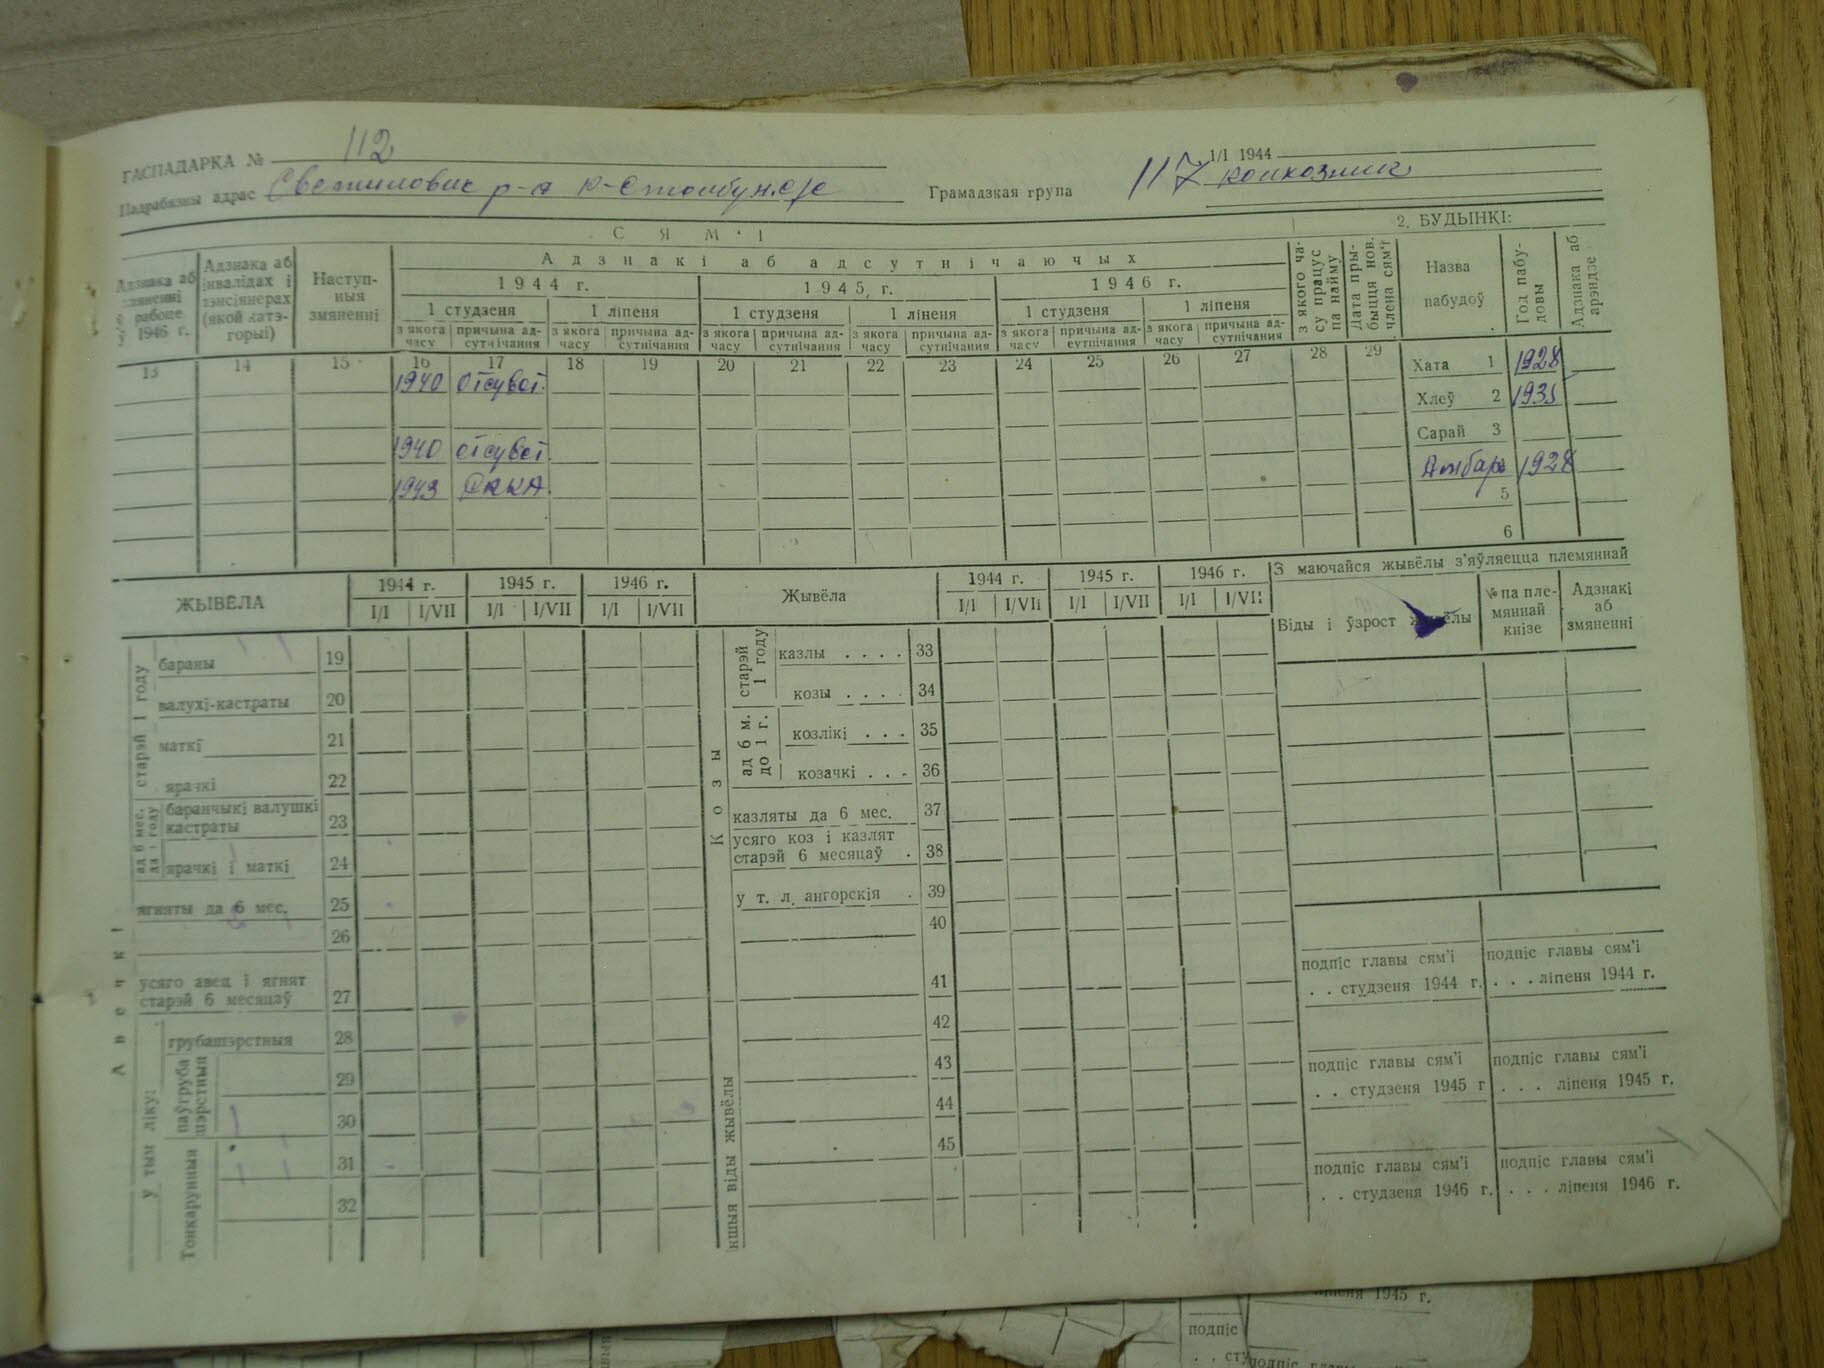 ГАСПАДАРКА № 112
1/I 1944
Падрабязны адрас
Грамадзкая група 117 колхозник
С Я М ' І
2. БУДЫНКІ:
Адзнака аб
рабоце
1946 г.
Адзнака аб
інвалідах і
пэнсіянерах
(якой катэ-
горыі)
Наступ-
ныя
змяненні
Адзнакі аб адсутнічаючых
1944 г. 1945 г. 1946 г.
1 студзеня 1 ліпеня 1 студзеня 1 ліпеня 1 студзеня 1 ліпеня
з якога часу причына ад-сутнічання з якога часу прычына ад-сутнічання з якога часу прычына ад-сутнічання з якога часу прычына ад-сутнічання з якога часу прычына ад-сутнічання з якога часу прычына ад-сутнічання
з якога ча-
су працуе
па найму
Дата пры-
быцця нов.
члена сям'і
Назва
пабудоў
Год пабу-
довы
Адзнака аб
арэндзе
13 14 15 16 17 18 19 20 21 22 23 24 25 26 27 28 29
1940 отсутст.
1940 отсутст
1943 РККА
Хата 1 1928
Хлеў 2 1935
Сарай 3
Амбар 1928
5
6
ЖЫВЁЛА
1944 г. 1945 г. 1946 г.
I/I I/VII I/I I/VII I/I I/VII
Авечкі
старэй 1 году
бараны 19
валухі-кастраты 20
маткі 21
ярачкі 22
ад 6 мес.
да 1 году
баранчыкі валушкі
кастраты 23
ярачкі і маткі 24
ягняты да 6 мес. 25
26
усяго авец і ягнят
старэй 6 месяцаў 27
у тым ліку:
грубашэрстныя 28
паўгруба
шэрстныя
29
30
Тонкарунныя
31
32
Жывёла
1944 г. 1945 г. 1946 г.
I/I I/VII I/I I/VII I/I I/VII
Козы
старэй
1 году
казлы . . . . 33
козы . . . . 34
ад 6 м.
до 1 г.
козлікі . . . 35
козачкі . . . 36
казляты да 6 мес. 37
усяго коз і казлят
старэй 6 месяцаў . 38
у т. л. ангорскія . 39
40
іншыя віды жывёлы
41
42
43
44
45
З маючайся жывёлы з'яўляецца племяннай
Віды і ўзрост жывёлы
№ па пле-
мяннай
кнізе
Адзнакі
аб
змяненні
подпіс главы сям'і подпіс главы сям'і
. . студзеня 1944 г. . . . ліпеня 1944 г.
подпіс главы сям'і подпіс главы сям'і
. . студзеня 1945 г . . . ліпеня 1945 г.
подпіс главы сям'і подпіс главы сям'і
. . студзеня 1946 г. . . . ліпеня 1946 г.
ліпеня 1945 г.
подпіс
. . сту
подпіс главы